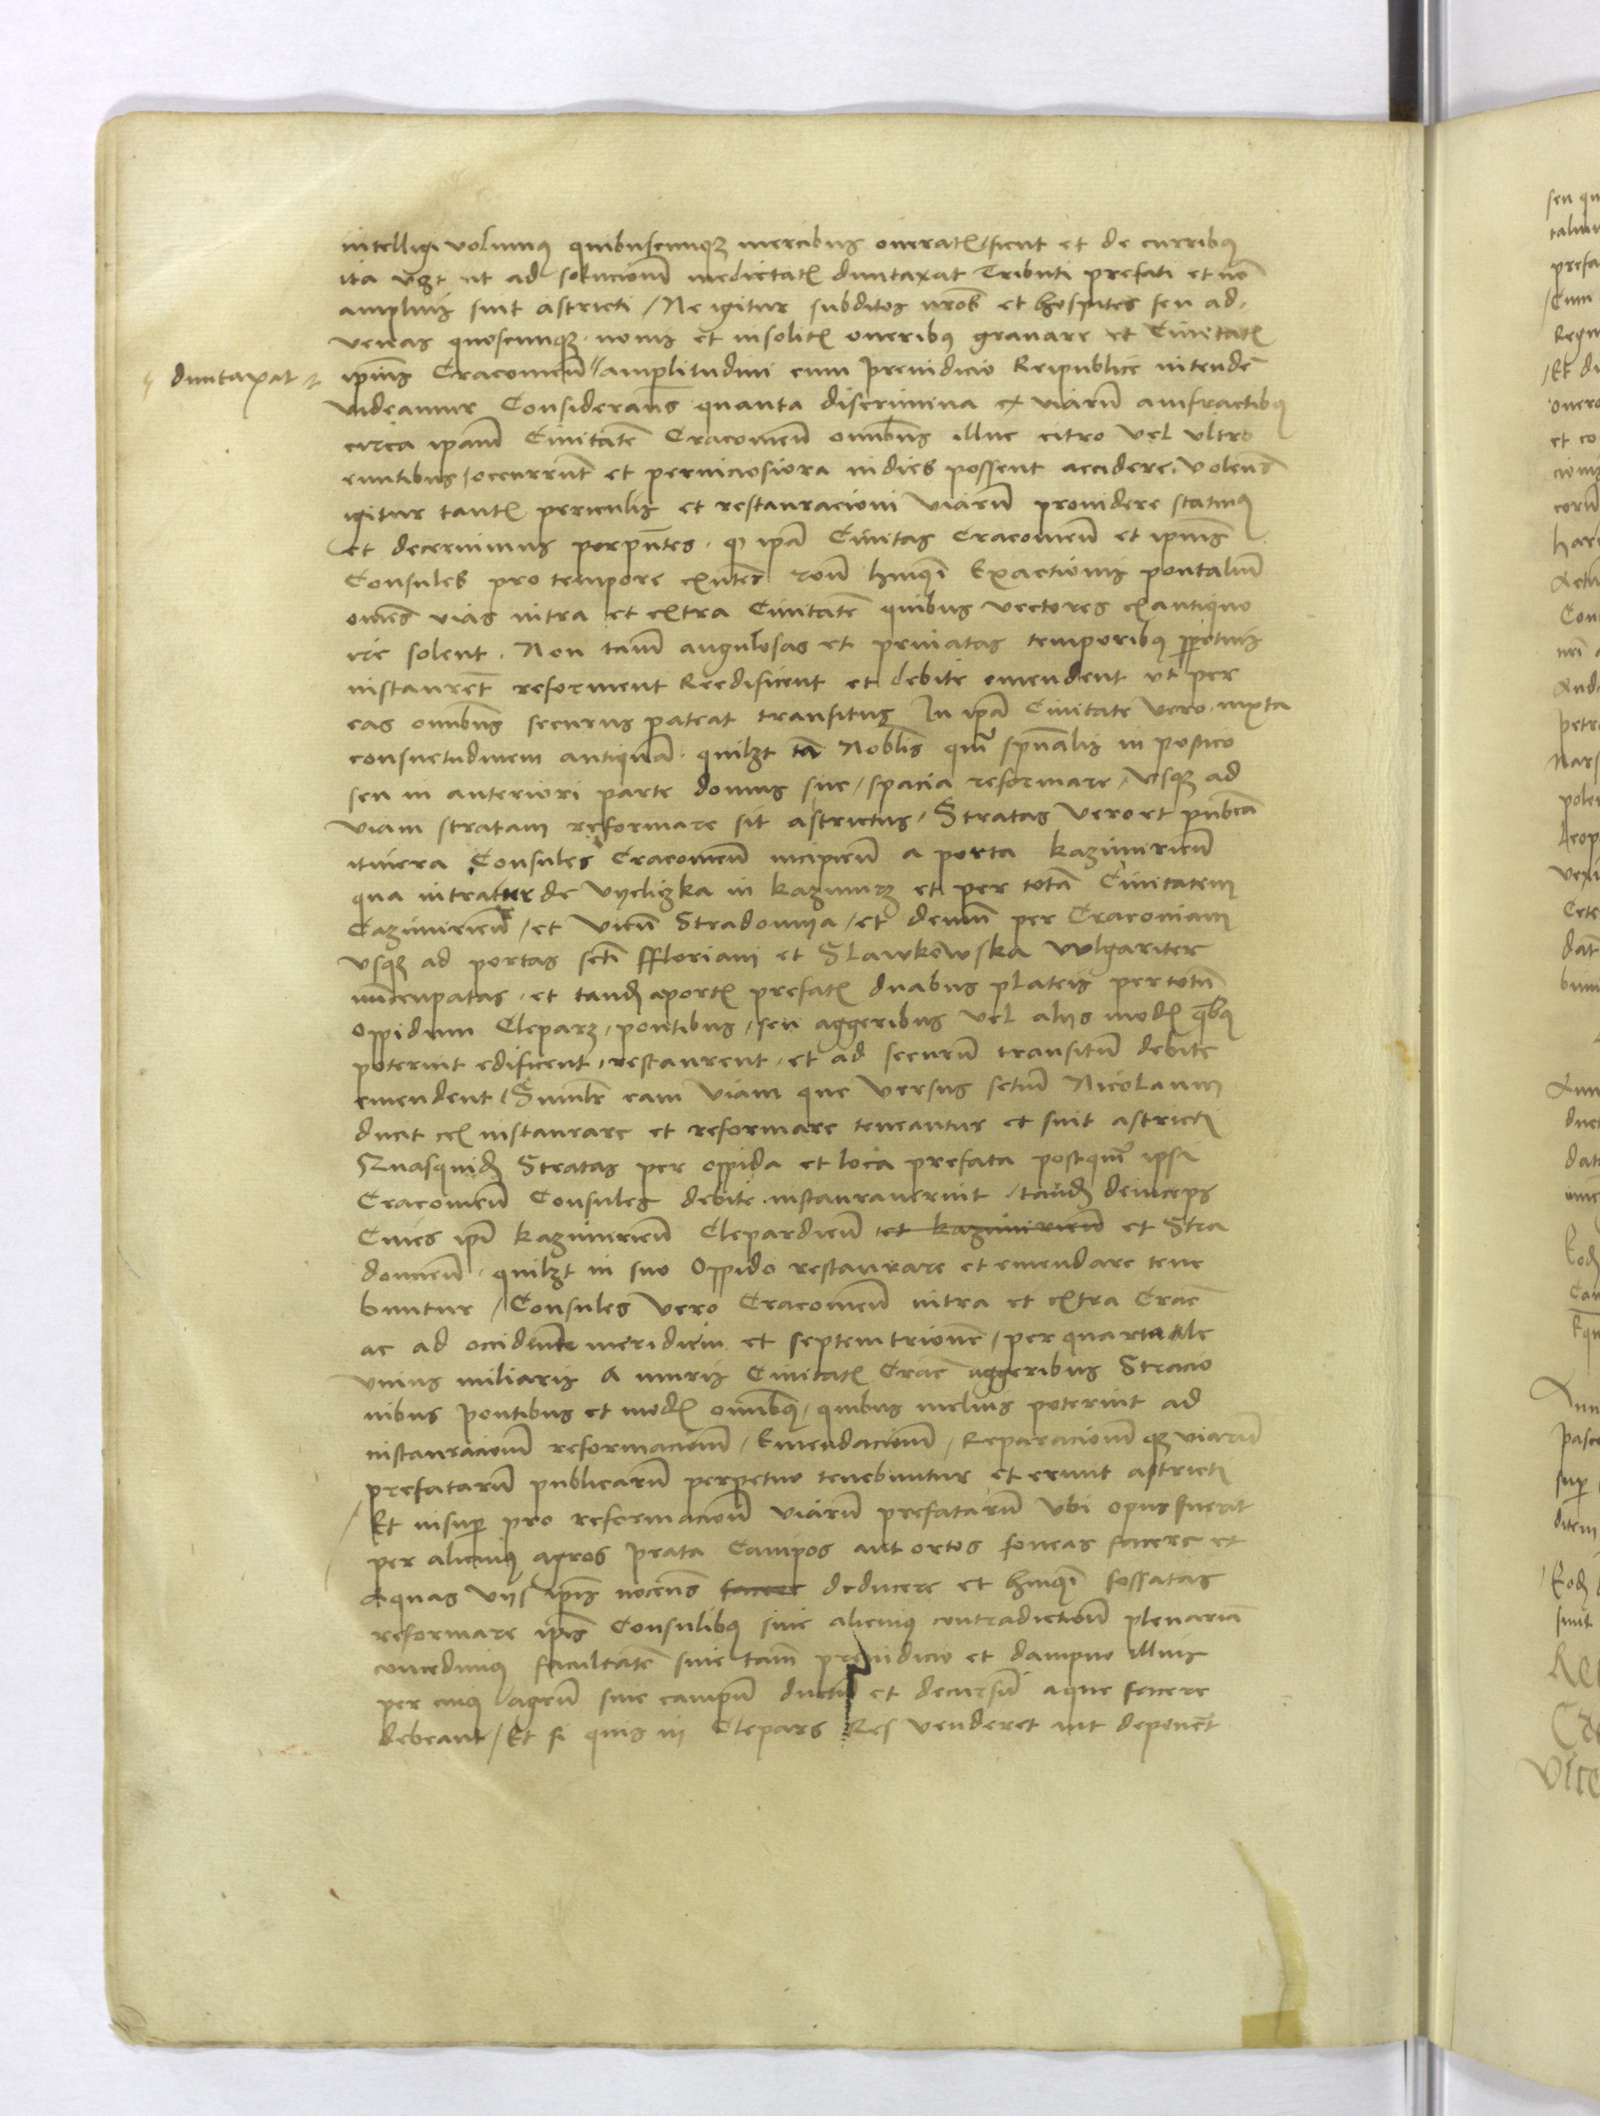 intelligi volumus quibuscunqz mercibus onerat sicut et de curribus
ita vzt ut ad solucionem medietat duntaxat Tributi prefati et non
amplius sint astricti / Ne igitur subditos nros et hospites seu ad
venas quoscunqz novis et insolit oneribus gravare et Civitat
duntaxat
ipius Cracovien amplitudini cum preiudicio Reipublice intende
videamur Considerans quanta discrimina ex viarum anfractibus
circa ipam Civitatem Cracovien omnibus illuc citro vel ultro
euntibus / occurrunt et perniciosiora indies possent accidere volens
igitur tant periculis et restauracioni viarum providere statuimus
et decernimus perpntes q ipa Civitas Cracovien et ipius
Consules pro tempore exntes Exactionis pontalium
omnes vias intra et extra Civitatem quibus vectores ex antiquo
ire solent . Non tam angulosas et privatas temporibus ppetuis
instaurent reforment Reedificent et debite emendent ut per
eas omnibus securus pateat transitus In ipa Civitate vero iuxta
consuetudinem antiquam quilzt tam Nobilis qm spualis in postico
seu in anteriori parte domus sue / spacia reformare / usqz ad
viam stratam reformare sit astrictus / Stratas vero et publica
itinera Consules Cracovien incipien a porta kazimirien
qua intratur de vyelizka in kazimirz et per totam Civitatem
Cazimirien / et vicum Stradomya / et demum per Cracoviam
usqz ad portas scti ffloriani et Slawkowska vulgariter
nuncupatas et tand aport prefat duabus plateis per totum
oppidum Cleparz / pontibus / seu aggeribus vel aliis mod qbus
poterint edificent restaurent et ad securum transitum debite
emendent / Similr eam viam que versus sctum Nicolaum
ducit instaurare et reformare teneantur et sint astricti
Quasquid Stratas per oppida et loca prefata postquam ipsi
Cracovien Consules debite instauraverint tand deinceps
Cives ipi kazimirien Clepardien et kazimirien et Stra
domien quilzt in suo Oppido restaurare et emendare tene
buntur / Consules vero Cracovien intra et extra Crac
ac ad occidente meridiem et septemtrionem / per quartale
unius miliaris A muris Civitat Crac aggeribus Stracio
nibus pontibus et mod omnibus quibus melius poterint ad
instauracionem reformacionem / Emendacionem / Reparacionem qz viarum
prefatarum publicarum perpetuo tenebuntur et erunt astricti
/ Et insup pro reformacione viarum prefatarum ubi opus fuerit
per alicuius agros prata Campos aut ortos foveas facere et
Aquas viis ipis nocens facere deducere et fossatas
reformare ipis Consulibus sine alicuius contradictione plenariam
concedimus facultatem sine tam preiudicio et dampno illius
per cuius agrum sive campum ductum et decursum aque facere
debeant / Et si quis in Clepars Res venderet aut deponet